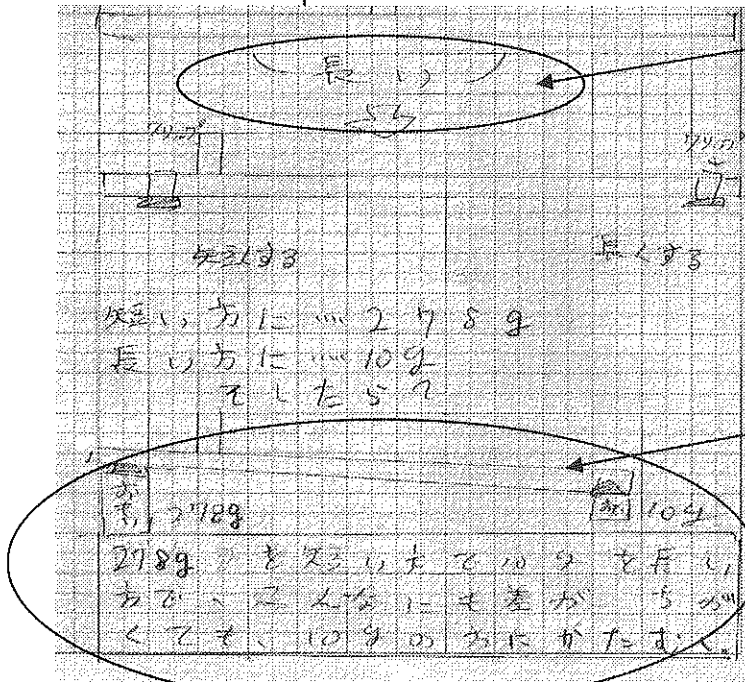 長い
クリップ
クリップ
短くする
長くする
短い方に…278g
長い方に…10g
そしたら?
おもり 278g
10g
278gを短い方で10gを長い
方で、こんなにも差が
くても、10gの方にかたむく。